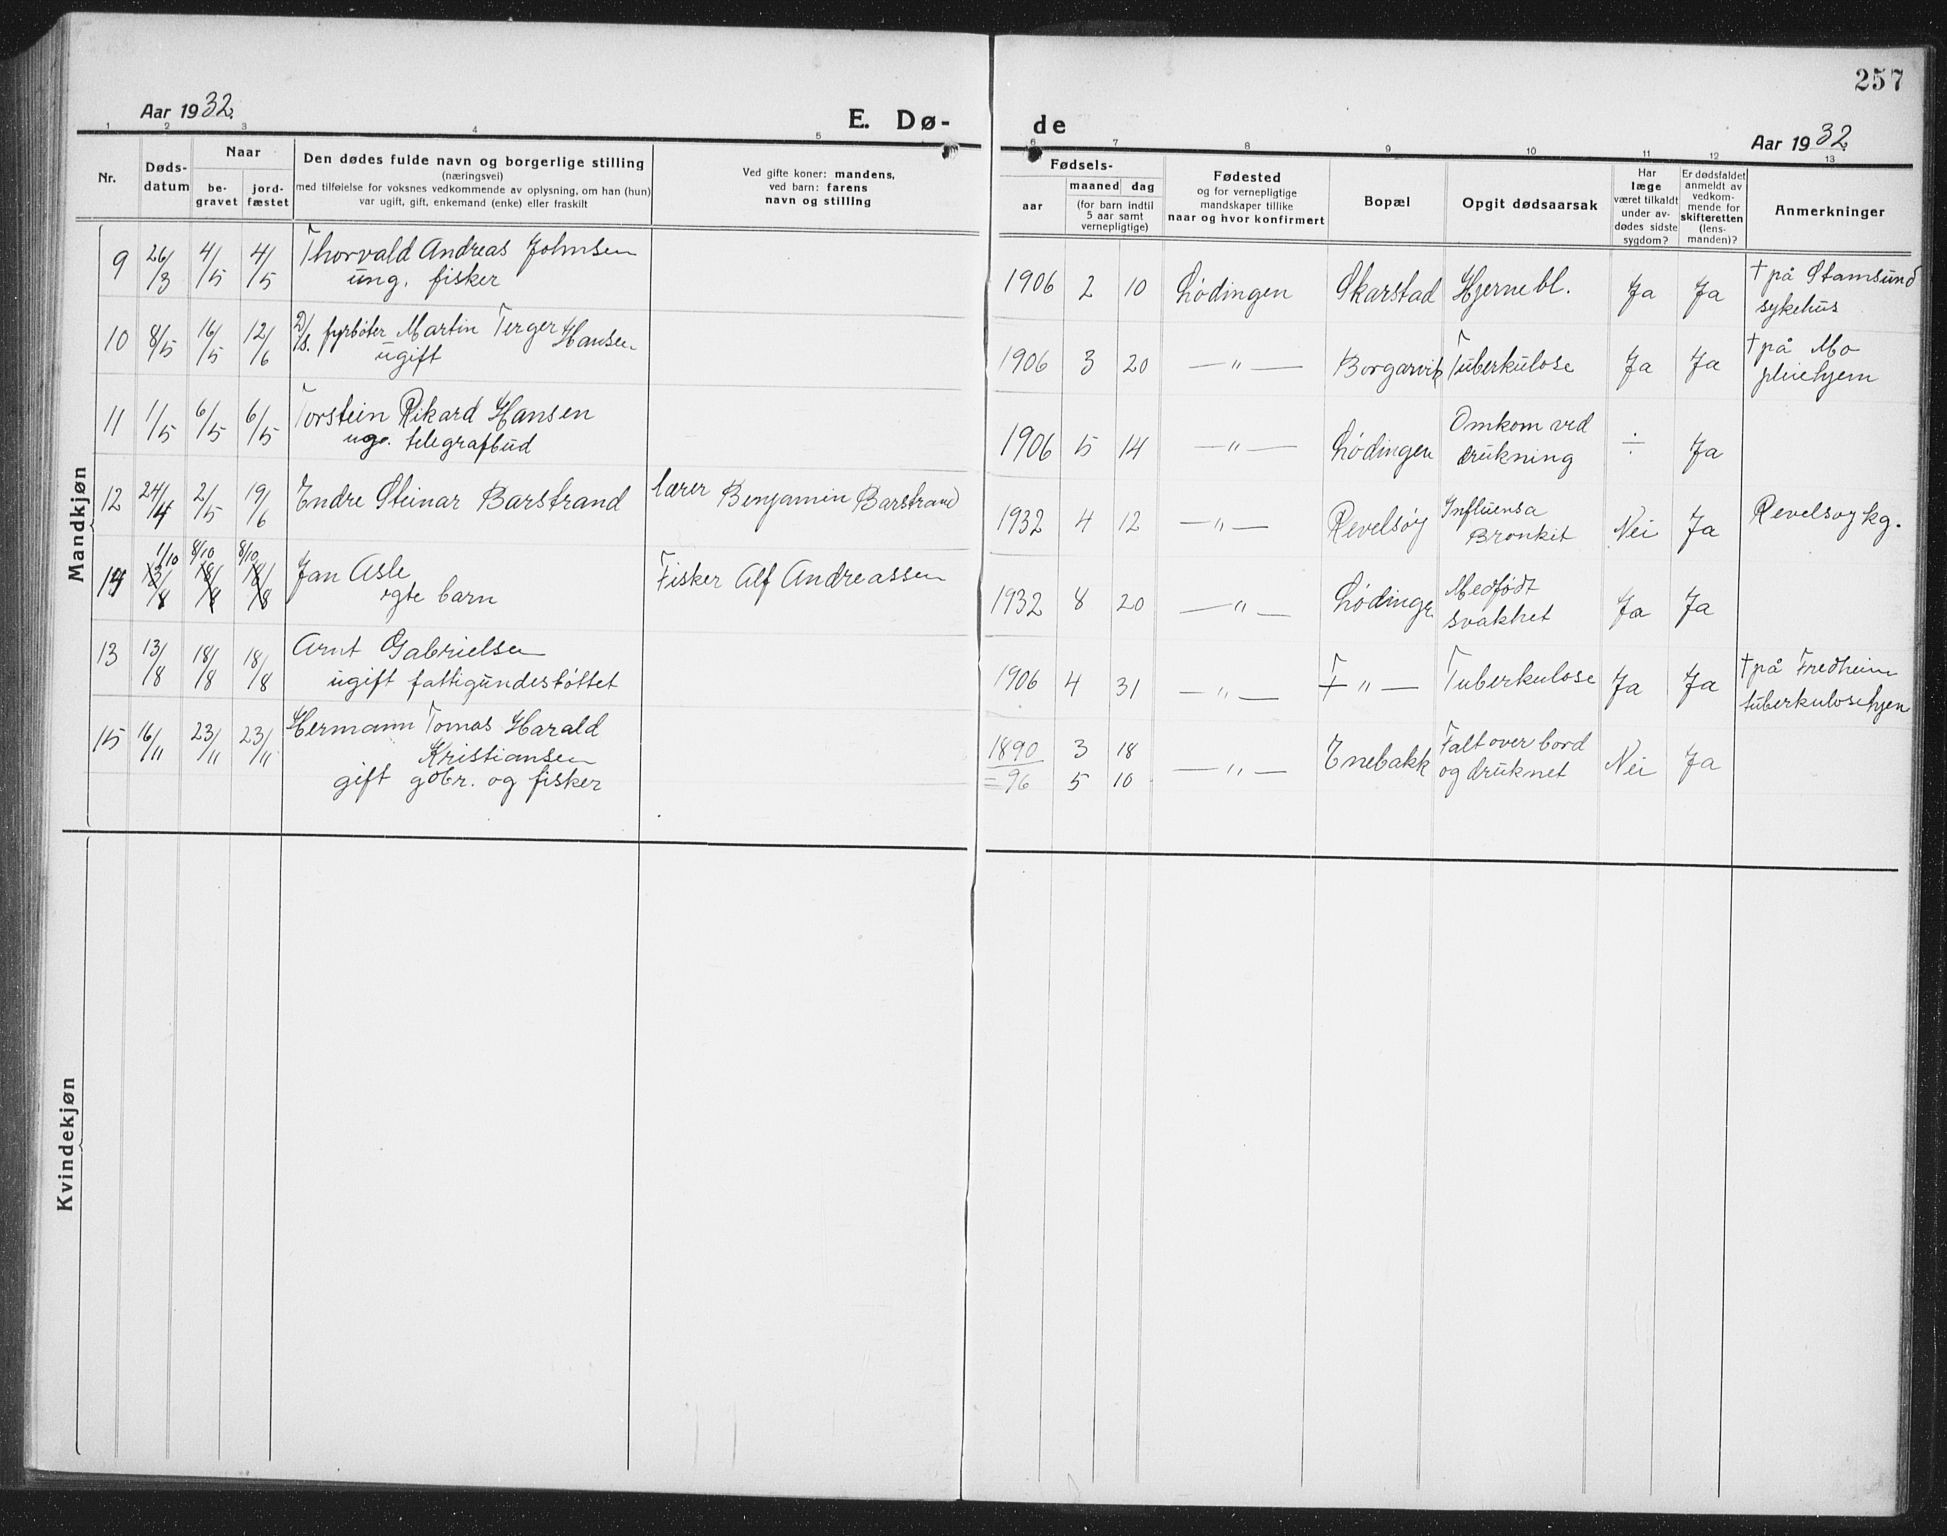 257
Aar 1932.
E. Dø-
de
Aar 1932
1 2 3 4 5 6 7 8 9 10 11 12 13
Nr.
Døds-
datum
Naar
be-
gravet
jord-
fæstet
Den dødes fulde navn og borgerlige stilling
(næringsvei)
med tilføielse for voksnes vedkommende av oplysning, om han (hun)
var ugift, gift, enkemand (enke) eller fraskilt
Ved gifte koner: mandens,
ved barn: farens
navn og stilling
Fødsels-
aar
maaned dag
(for barn indtil
5 aar samt
vernepligtige)
Fødested
og for vernepligtige
mandskaper tillike
naar og hvor konfirmert
Bopæl
Opgit dødsaarsak
Har
læge
været tilkaldt
under av-
dødes sidste
sygdom?
Er dødsfaldet
anmeldt av
vedkom-
mende for
skifteretten
(lens-
manden)?
Anmerkninger
Mandkjøn
9 26/3 4/5 4/5 Thorvald Andreas Johnsen
ung. fisker
1906 2 10 Lødingen Skarstad Hjernebl. Ja Ja † på Stamsund
sykehus
10 8/5 16/5 12/6 D/s. fyrbøter Martin Terger Hansen
ugift
1906 3 20 — " — Borgarvik Tuberkulose Ja Ja † på Mo
pleiehjem
11 1/5 6/5 6/5 Torstein Rikard Hansen
ug. telegrafbud
1906 5 14 — " — Lødingen Omkom ved
drukning ÷ Ja
12 24/4 2/5 19/6 Endre Steinar Barstrand lærer Benjamin Barstrand
1932 4 12 — " — Revelsøy Influensa
Bronkit Nei Ja Revelsøy kg.
1/10 8/10 8/10
14 13/8 18/8 18/8 Jan Asle Fisker Alf Andreassen
egte barn
1932 8 20 — " — Lødinge Medfødt
svakhet Ja Ja
13 13/8 18/8 18/8 Arnt Gabrielsen
ugift fattigunderstøttet
1906 4 31 — " — " — Tuberkulose Ja Ja † på Fredheim
tuberkulosehjem
15 16/11 23/11 23/11 Hermann Tomas Harald
Kristiansen
gift gbr. og fisker
1890 3 18
= 96 5 10 — " — Enebakk Falt over bord
og druknet Nei Ja
Kvindekjøn